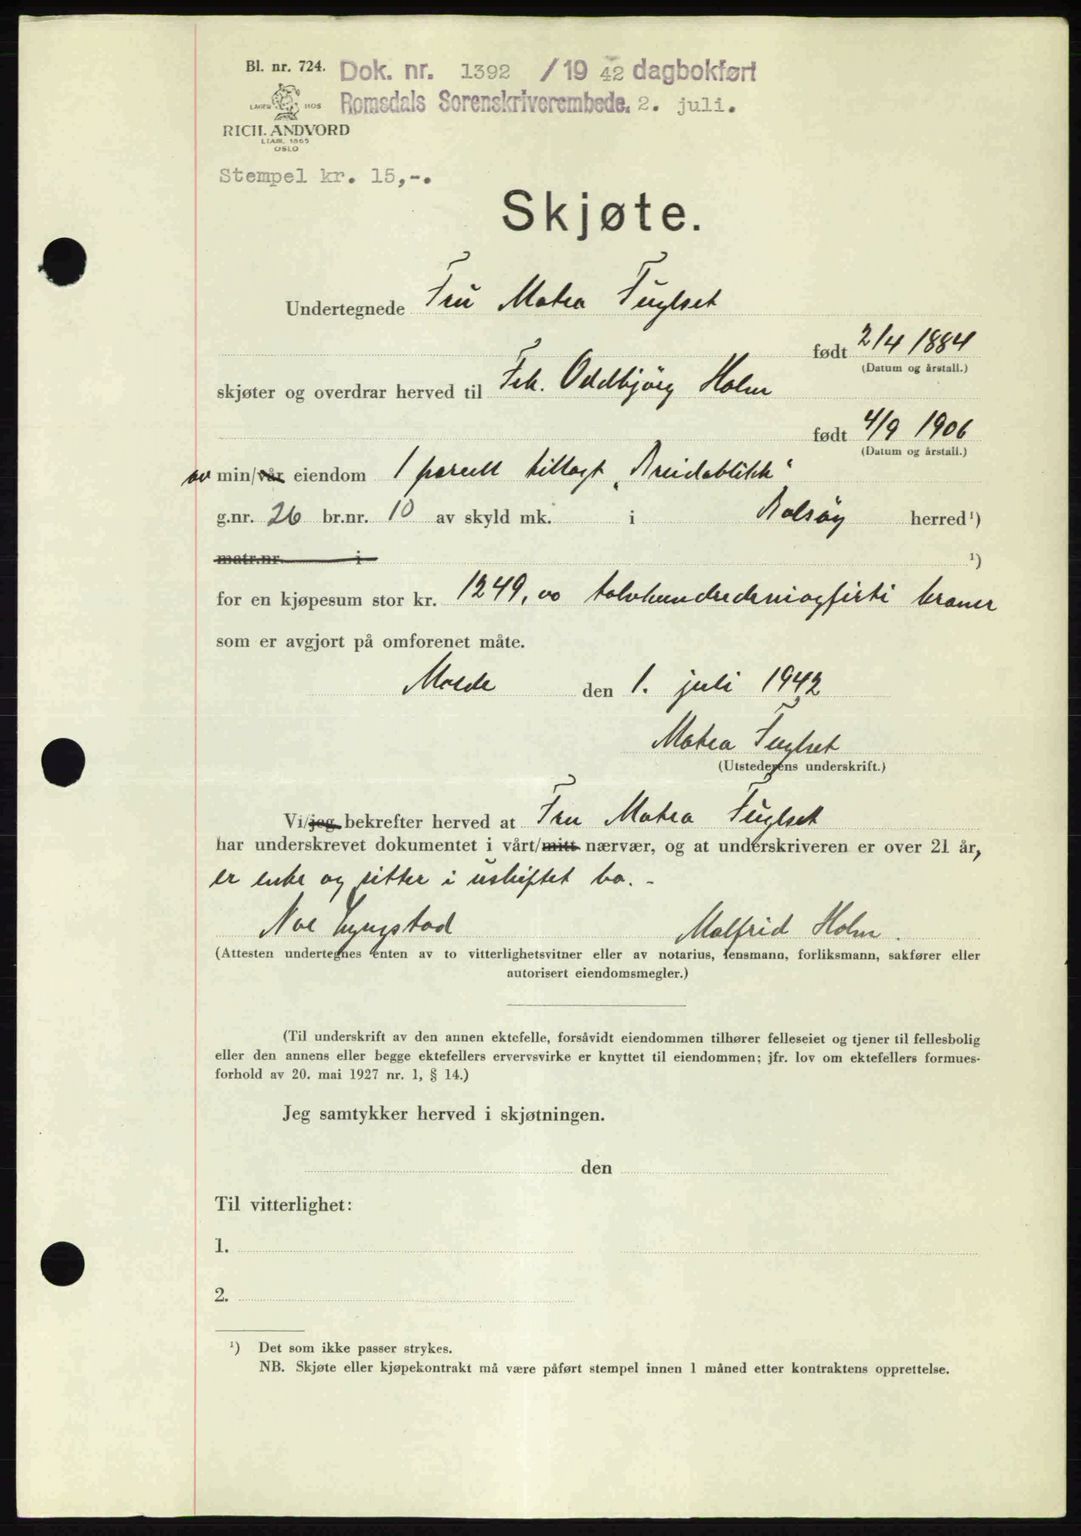 Bl. nr. 724.
Dok. nr. 1392 /19 42 dagbokført
LAGER HOS
Romsdals Sorenskriverembede. 2. juli.
RICH. ANDVORD
ETABL. 1865
OSLO
Stempel kr. 15,-.
Skjøte.
Undertegnede Fru Matea Fuglset
født 2/4 1884
(Datum og årstall.)
skjøter og overdrar herved til Frk. Oddbjörg Holm
født 4/9 1906
(Datum og årstall.)
av min/vår eiendom 1 parcell tillagt „Breidablikk“
g.nr. 26 br.nr. 10 av skyld mk. i Bolsöy herred¹)
matr.nr. i ¹)
for en kjøpesum stor kr. 1249,oo tolvhundredeniogfirti kroner
som er avgjort på omforenet måte.
Molde den 1. juli 1942
Matea Fuglset
(Utstederens underskrift.)
Vi/jeg bekrefter herved at Fru Matea Fuglset
har underskrevet dokumentet i vårt/mitt nærvær, og at underskriveren er over 21 år,
er enke og sitter i uskiftet bo. -
Lyngstad Malfrid Holm.
(Attesten undertegnes enten av to vitterlighetsvitner eller av notarius, lensmann, forliksmann, sakfører eller
autorisert eiendomsmegler.)
(Til underskrift av den annen ektefelle, forsåvidt eiendommen tilhører felleseiet og tjener til fellesbolig
eller den annens eller begge ektefellers ervervsvirke er knyttet til eiendommen; jfr. lov om ektefellers formues-
forhold av 20. mai 1927 nr. 1, § 14.)
Jeg samtykker herved i skjøtningen.
den
Til vitterlighet:
1.
2.
¹) Det som ikke passer strykes.
NB. Skjøte eller kjøpekontrakt må være påført stempel innen 1 måned etter kontraktens opprettelse.